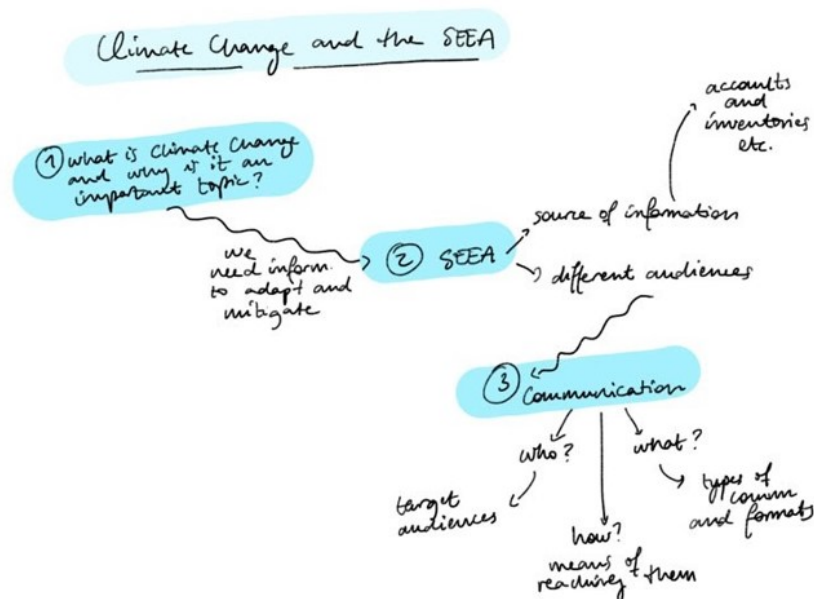 Climate Change and the SEEA
① what is Climate Change
and why is it an
important topic?
we
need inform.
to adapt and
mitigate
② SEEA
source of information
accounts
and
inventories
etc.
different audiences
③ Communication
who?
target
audiences
how?
means of
reaching them
what?
types of
comm
and formats